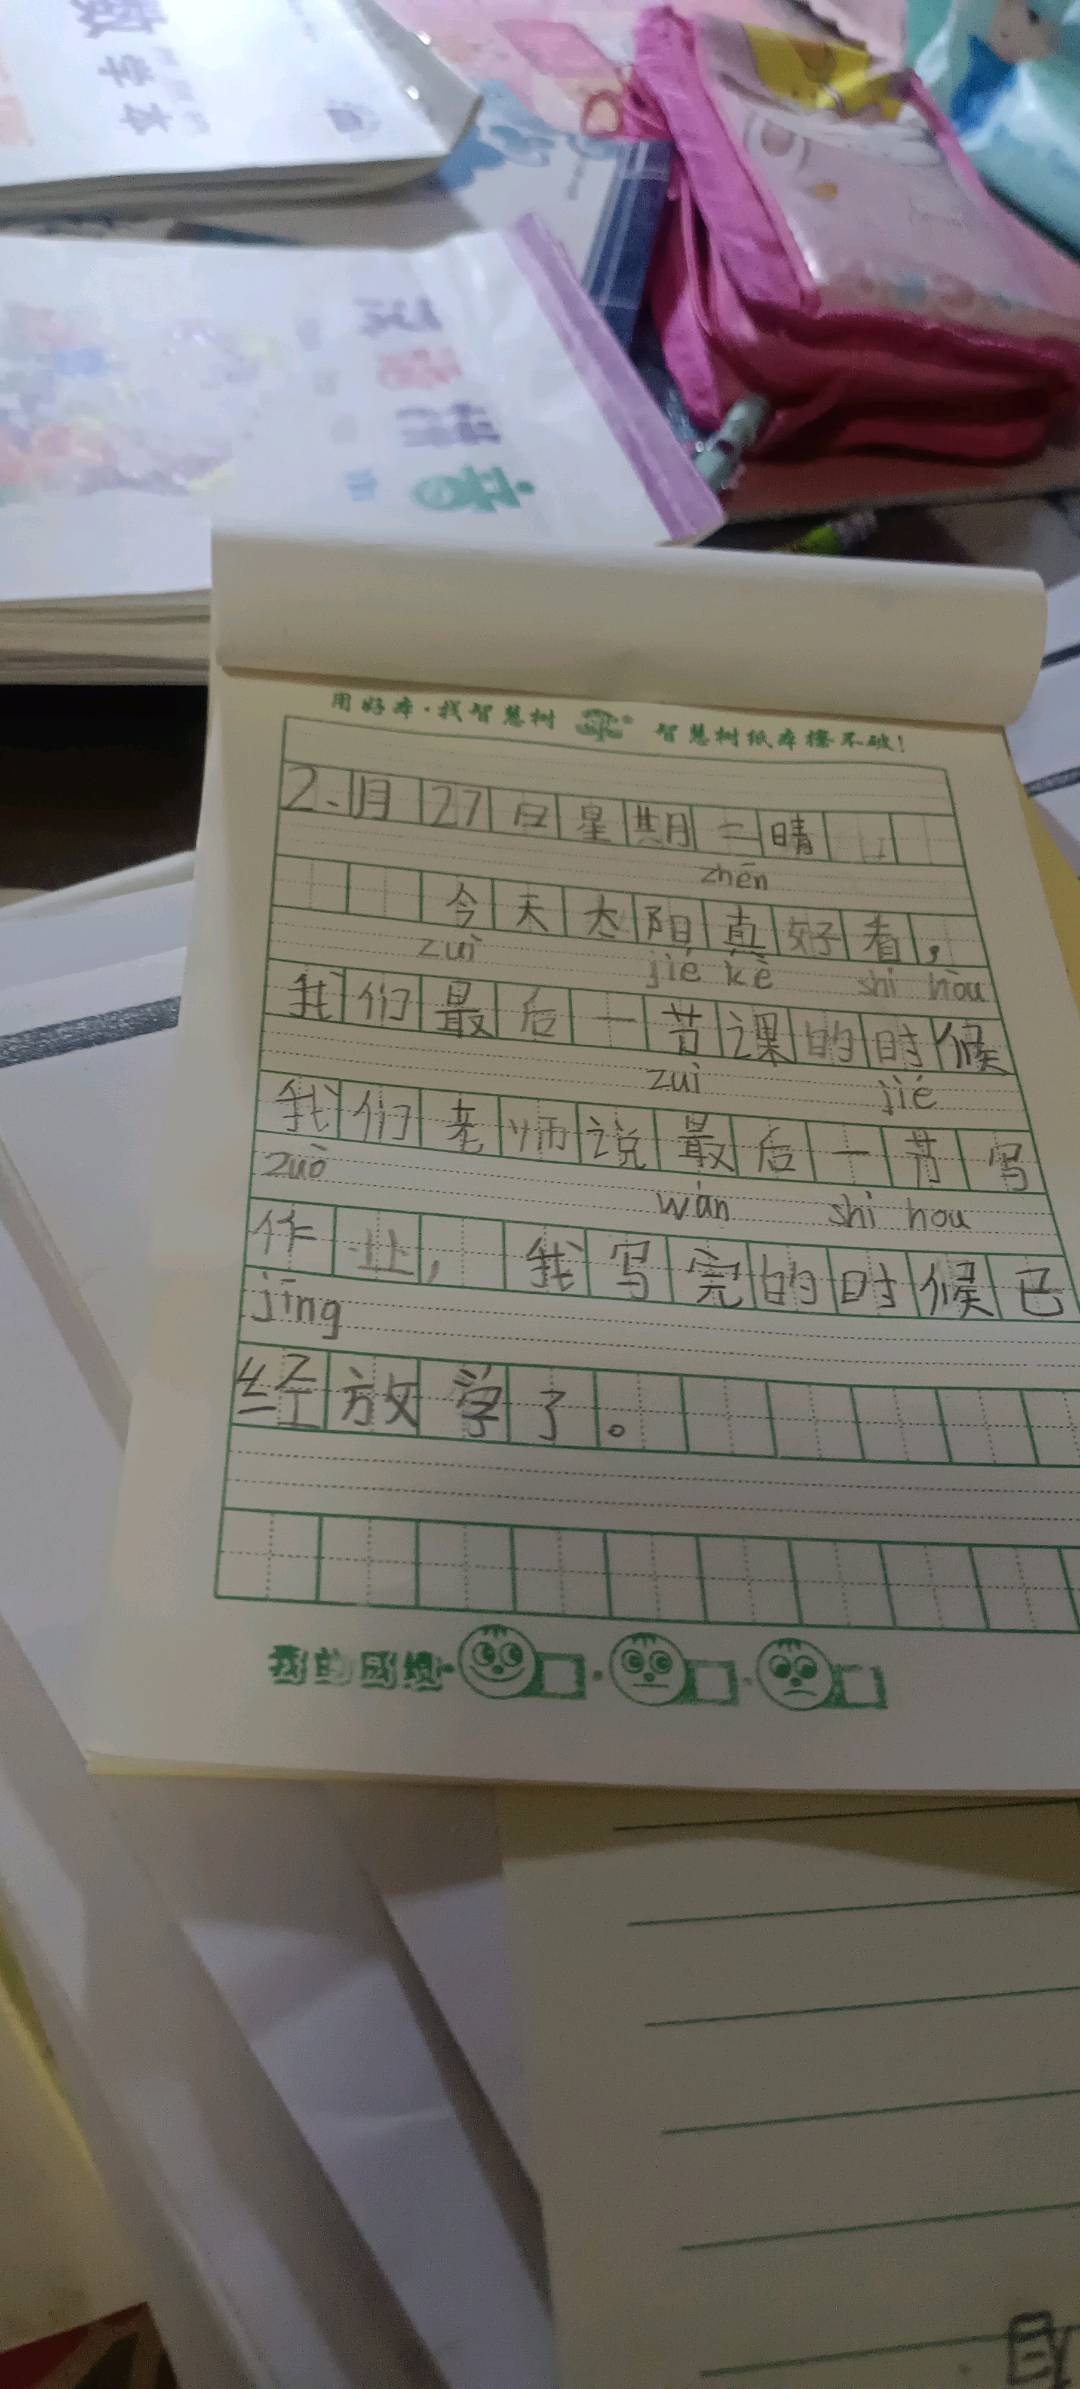 数学本
用好本·找智慧树 智慧树纸本擦不破！
2、月27日星期二晴
zhēn
今天太阳真好看，
zuì jié kè shí hòu
我们最后一节课的时候
zuì jié
我们老师说最后一节写
zuò wán shí hou
作业，我写完的时候已
jīng
经放学了。
我的成绩